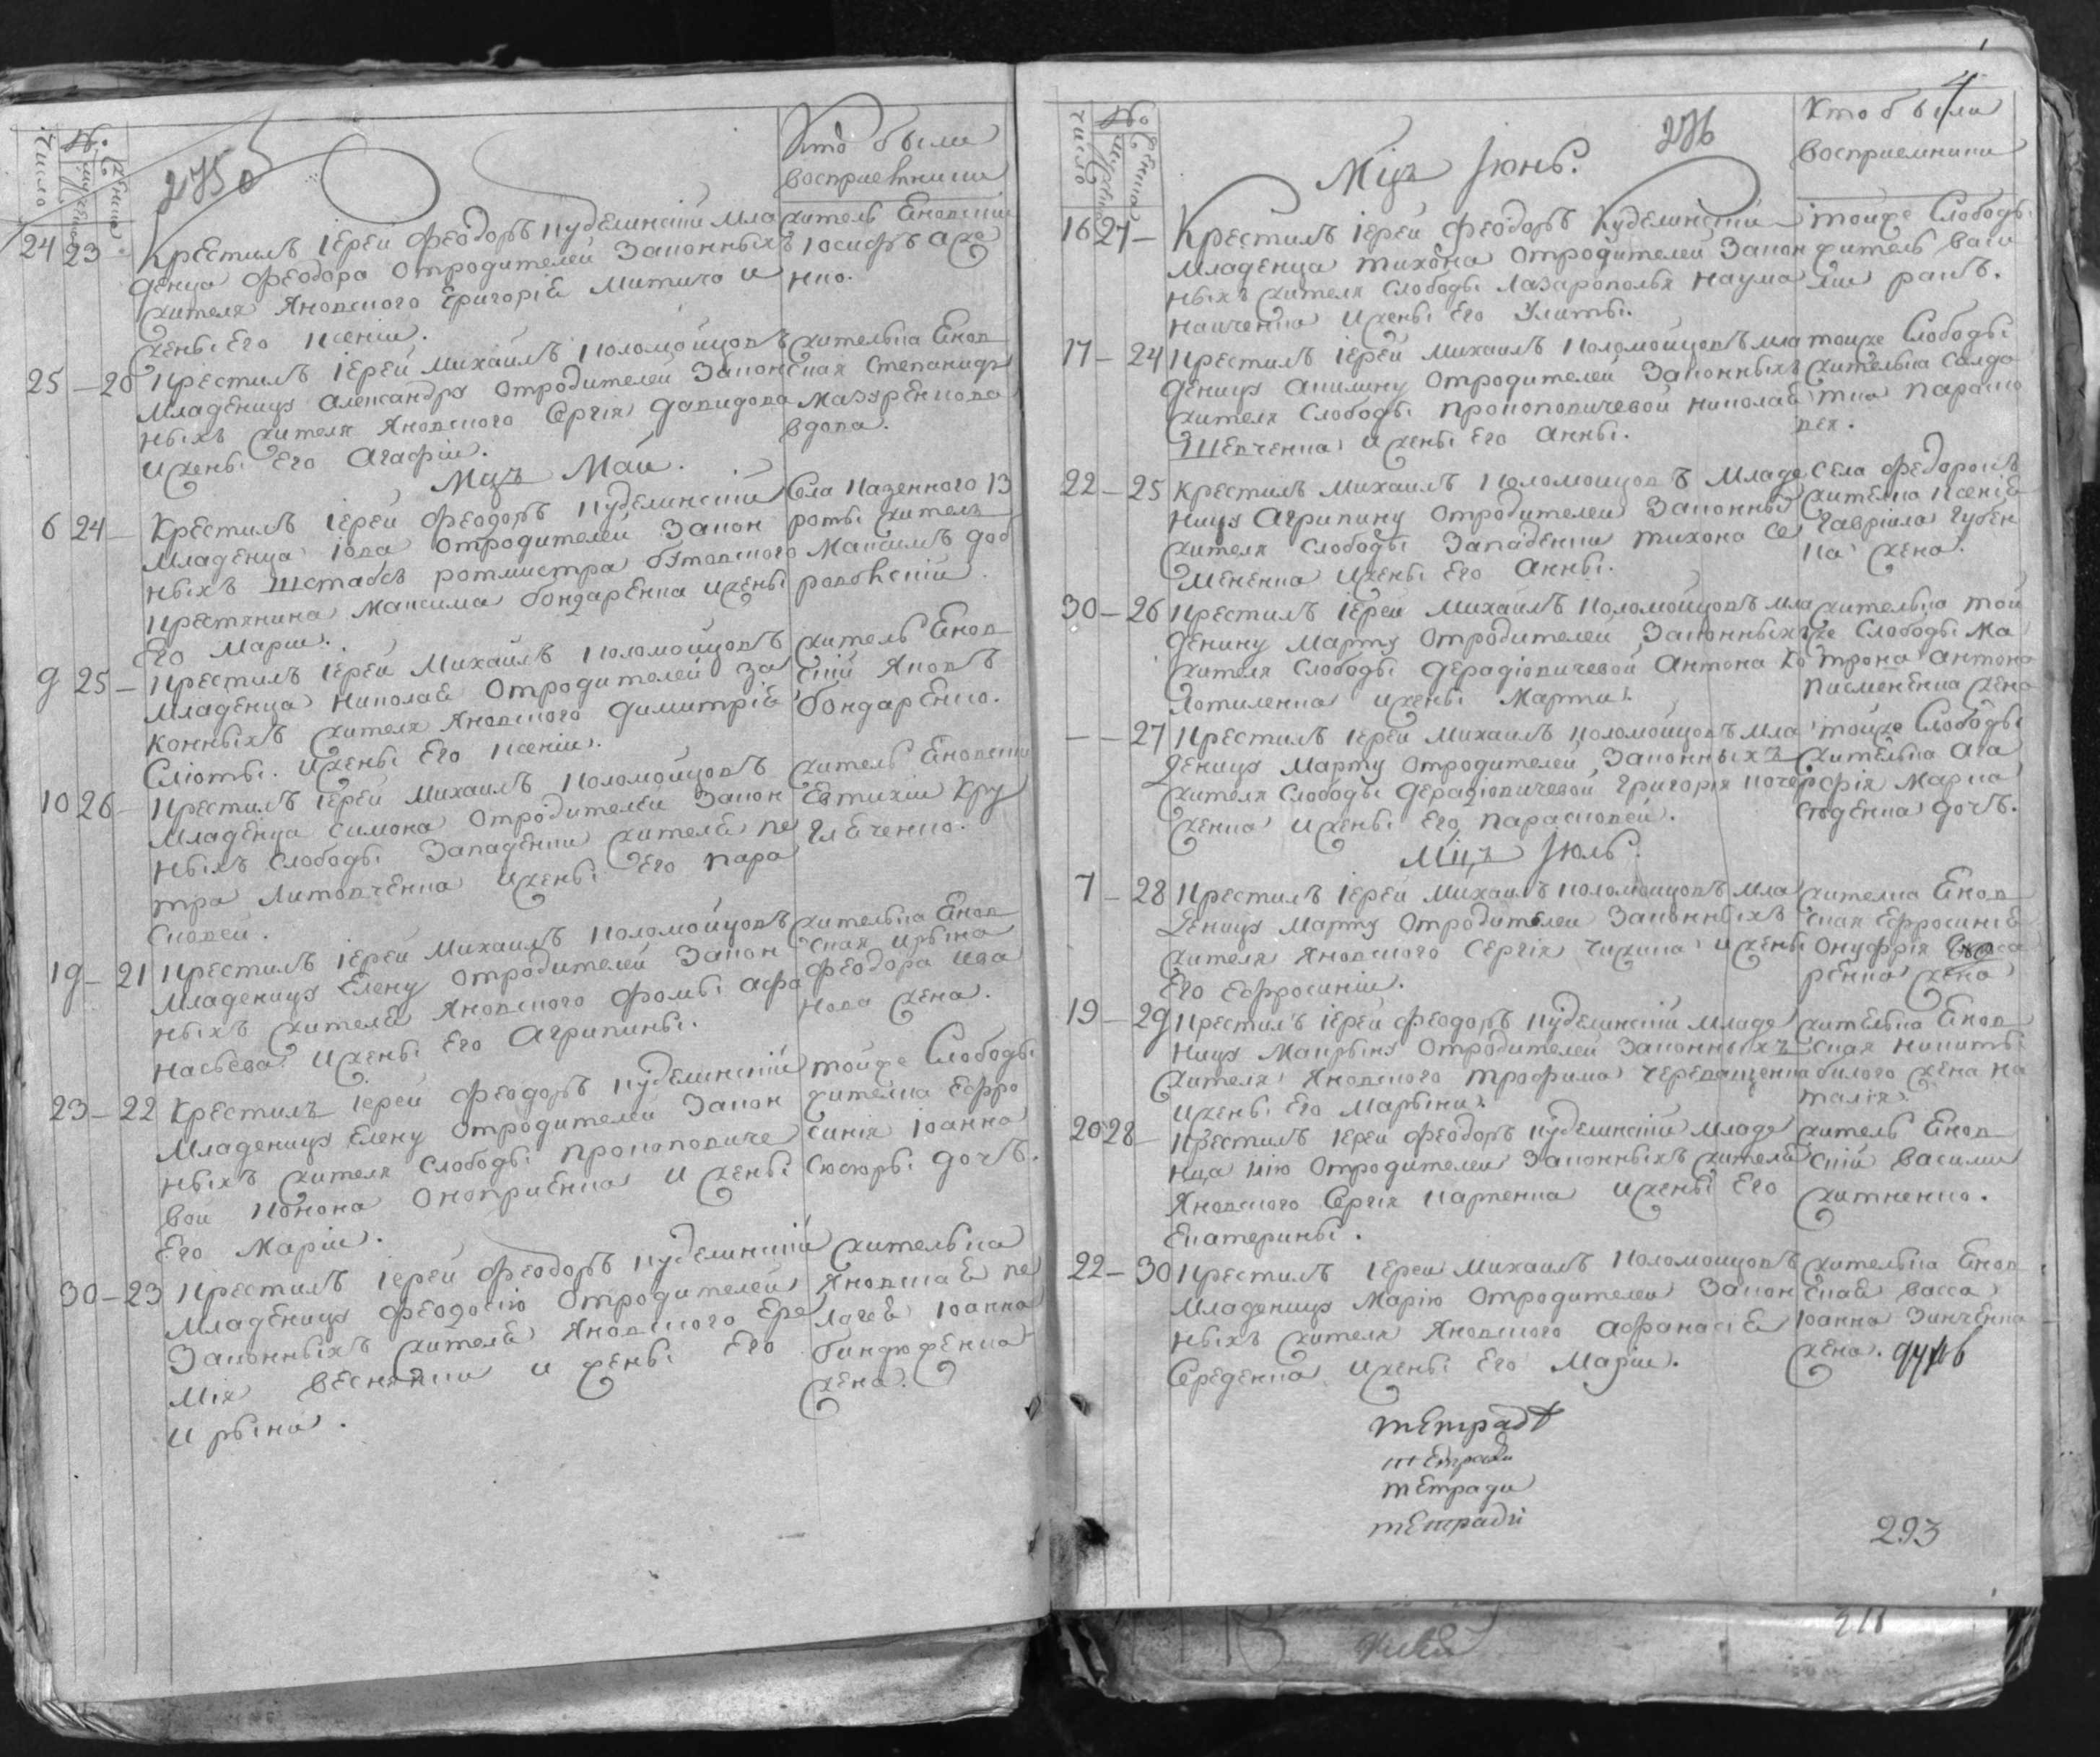 Число
№
мужеска
женска
275
Кто были
восприемники
24 23 Крестилъ Іерей Феодоръ Куделинскій мла
денца Феодора отродителей Законныхъ
жителя Яновского Григорія Митича и
жены Его Ксеніи.
житель Еновскій
Іосифъ
нко.
25 – 20 Крестилъ Іерей Михаилъ Коломойцовъ
Младеницу Александру отродителей Закон
ныхъ жителя Яновского Сергія Давидова
Ижены Его Агафіи.
жителька Енов
ская Степанида
Мазуренкова
вдова.
Мцъ Май.
6 24 – Крестилъ Іерей Феодоръ Куделинскій
Младенца Іова отродителей Закон
ныхъ Штабсъ ротмистра
крестянина Максима Бондаренка Ижены
Его Маріи.
Села Казенного 13
роты житель
Максимъ Доб
ровонскій
9 25 – Крестилъ Іерей Михаилъ Коломойцовъ
Младенца Николая Отродителей За
конныхъ жителя Яновского Димитрія
Сліоты. Ижены Его Ксеніи.
житель Енов
скій Яковъ
Бондаренко.
10 26 – Крестилъ Іерей Михаилъ Коломойцовъ
Младенца Симона Отродителей Закон
ныхъ Слободы Западенки жителя Пе
тра Литовченка Ижены Его Пара
сковеи.
житель Еновскій
Евтихій Кру
глѣченко.
19 – 21 Крестилъ Іерей Михаилъ Коломойцовъ
Младеницу Елену Отродителей Закон
ныхъ жителя Яновского Фомы Афа
насьева Ижены Его Агрипины.
жителька Енов
ская Ирына
Феодора Ива
нова жена.
23 – 22 Крестилъ Іерей Феодоръ Куделинскій
Младеницу Елену Отродителей Закон
ныхъ жителя Слободы Прокоповиче
вой Конона Оноприенка И жены
Его Маріи.
тойже Слободы
жителка Ефро
синія Іоанна
Сюсюры дочь.
30 – 23 Крестилъ Іерей Феодоръ Куделинскій
Младеницу Феодосію Отродителей
Законныхъ жителя Яновского Ере
мія Веснянки и жены Его
Ирына.
жителька
Яновская Пе
лагея Іоанна
Биндюженка
жена.
4
Число
№
мужеска
женска
276
Мцъ Іюнь.
Кто были
восприемники
16 27 – Крестилъ Іерей Феодоръ Куделинскій
Младенца Тихона Отродителей Закон
ныхъ жителя Слободы Лазарополья Наума
Ижены Его Улиты.
тойже Слободы
житель Васи
лій Ракъ.
17 – 24 Крестилъ Іерей Михаилъ Коломойцовъ мла
деницу Акилину Отродителей Законныхъ
жителя Слободы Прокоповичевой Николая
Шевченка Ижены Его Анны.
тойже Слободы
жителька Салда
тка Параско
вея.
22 – 25 Крестилъ Михаилъ Коломойцовъ Младе
ницу Агрипину Отродителей Законны
жителя Слободы Западенки Тихона Се
мененка Ижены Его Анны.
Села Федоровк
жителка Ксенія
Гавріила Губен
ка жена.
30 – 26 Крестилъ Іерей Михаилъ Коломойцовъ мла
денину Марту Отродителей Законныхъ
жителя Слободы Герадіовичевой Антона Ко
Ижены Марты.
жителька той
же Слободы Ма
трона Антона
Писмененка жена
– – 27 Крестилъ Іерей Михаилъ Коломойцовъ Мла
деницу Марту Отродителей Законныхъ
жителя Слободы Герадіовичевой Григорія Коче
женка Ижены Его Парасковеи.
тойже Слободы
жителька Ага
фія Марка
дочь.
Мцъ Іюль.
7 – 28 Крестилъ Іерей Михаилъ Коломойцовъ Мла
деницу Марту Отродителей Законныхъ
жителя Яновского Сергія Чижика Ижены
Его Ефросиніи.
жителка Енов
ская Ефросинія
Онуфрія
ренка жена
19 – 29 Крестилъ Іерей Феодоръ Куделинскій Младе
ницу Макрыну Отродителей Законныхъ
жителя Яновского Трофима Черевашенка
Ижены Его Марыны.
жителька Енов
ская Никиты
Билого жена На
талія.
20 28 – Крестилъ Іерей Феодоръ Куделинскій Младе
нца Илію Отродителей Законныхъ жителя
Яновского Сергія Карпенка Ижены Его
Екатерины.
житель Енов
скій Василий
Житненко.
22 – 30 Крестилъ Іерей Михаилъ Коломойцовъ
Младеницу Марію Отродителей Закон
ныхъ жителя Яновского Афанасія
Середенка Ижены Его Маріи.
жителька Енов
ская Васса
Іоанна Зинченка
жена.
тетради
тетради
тетради
293